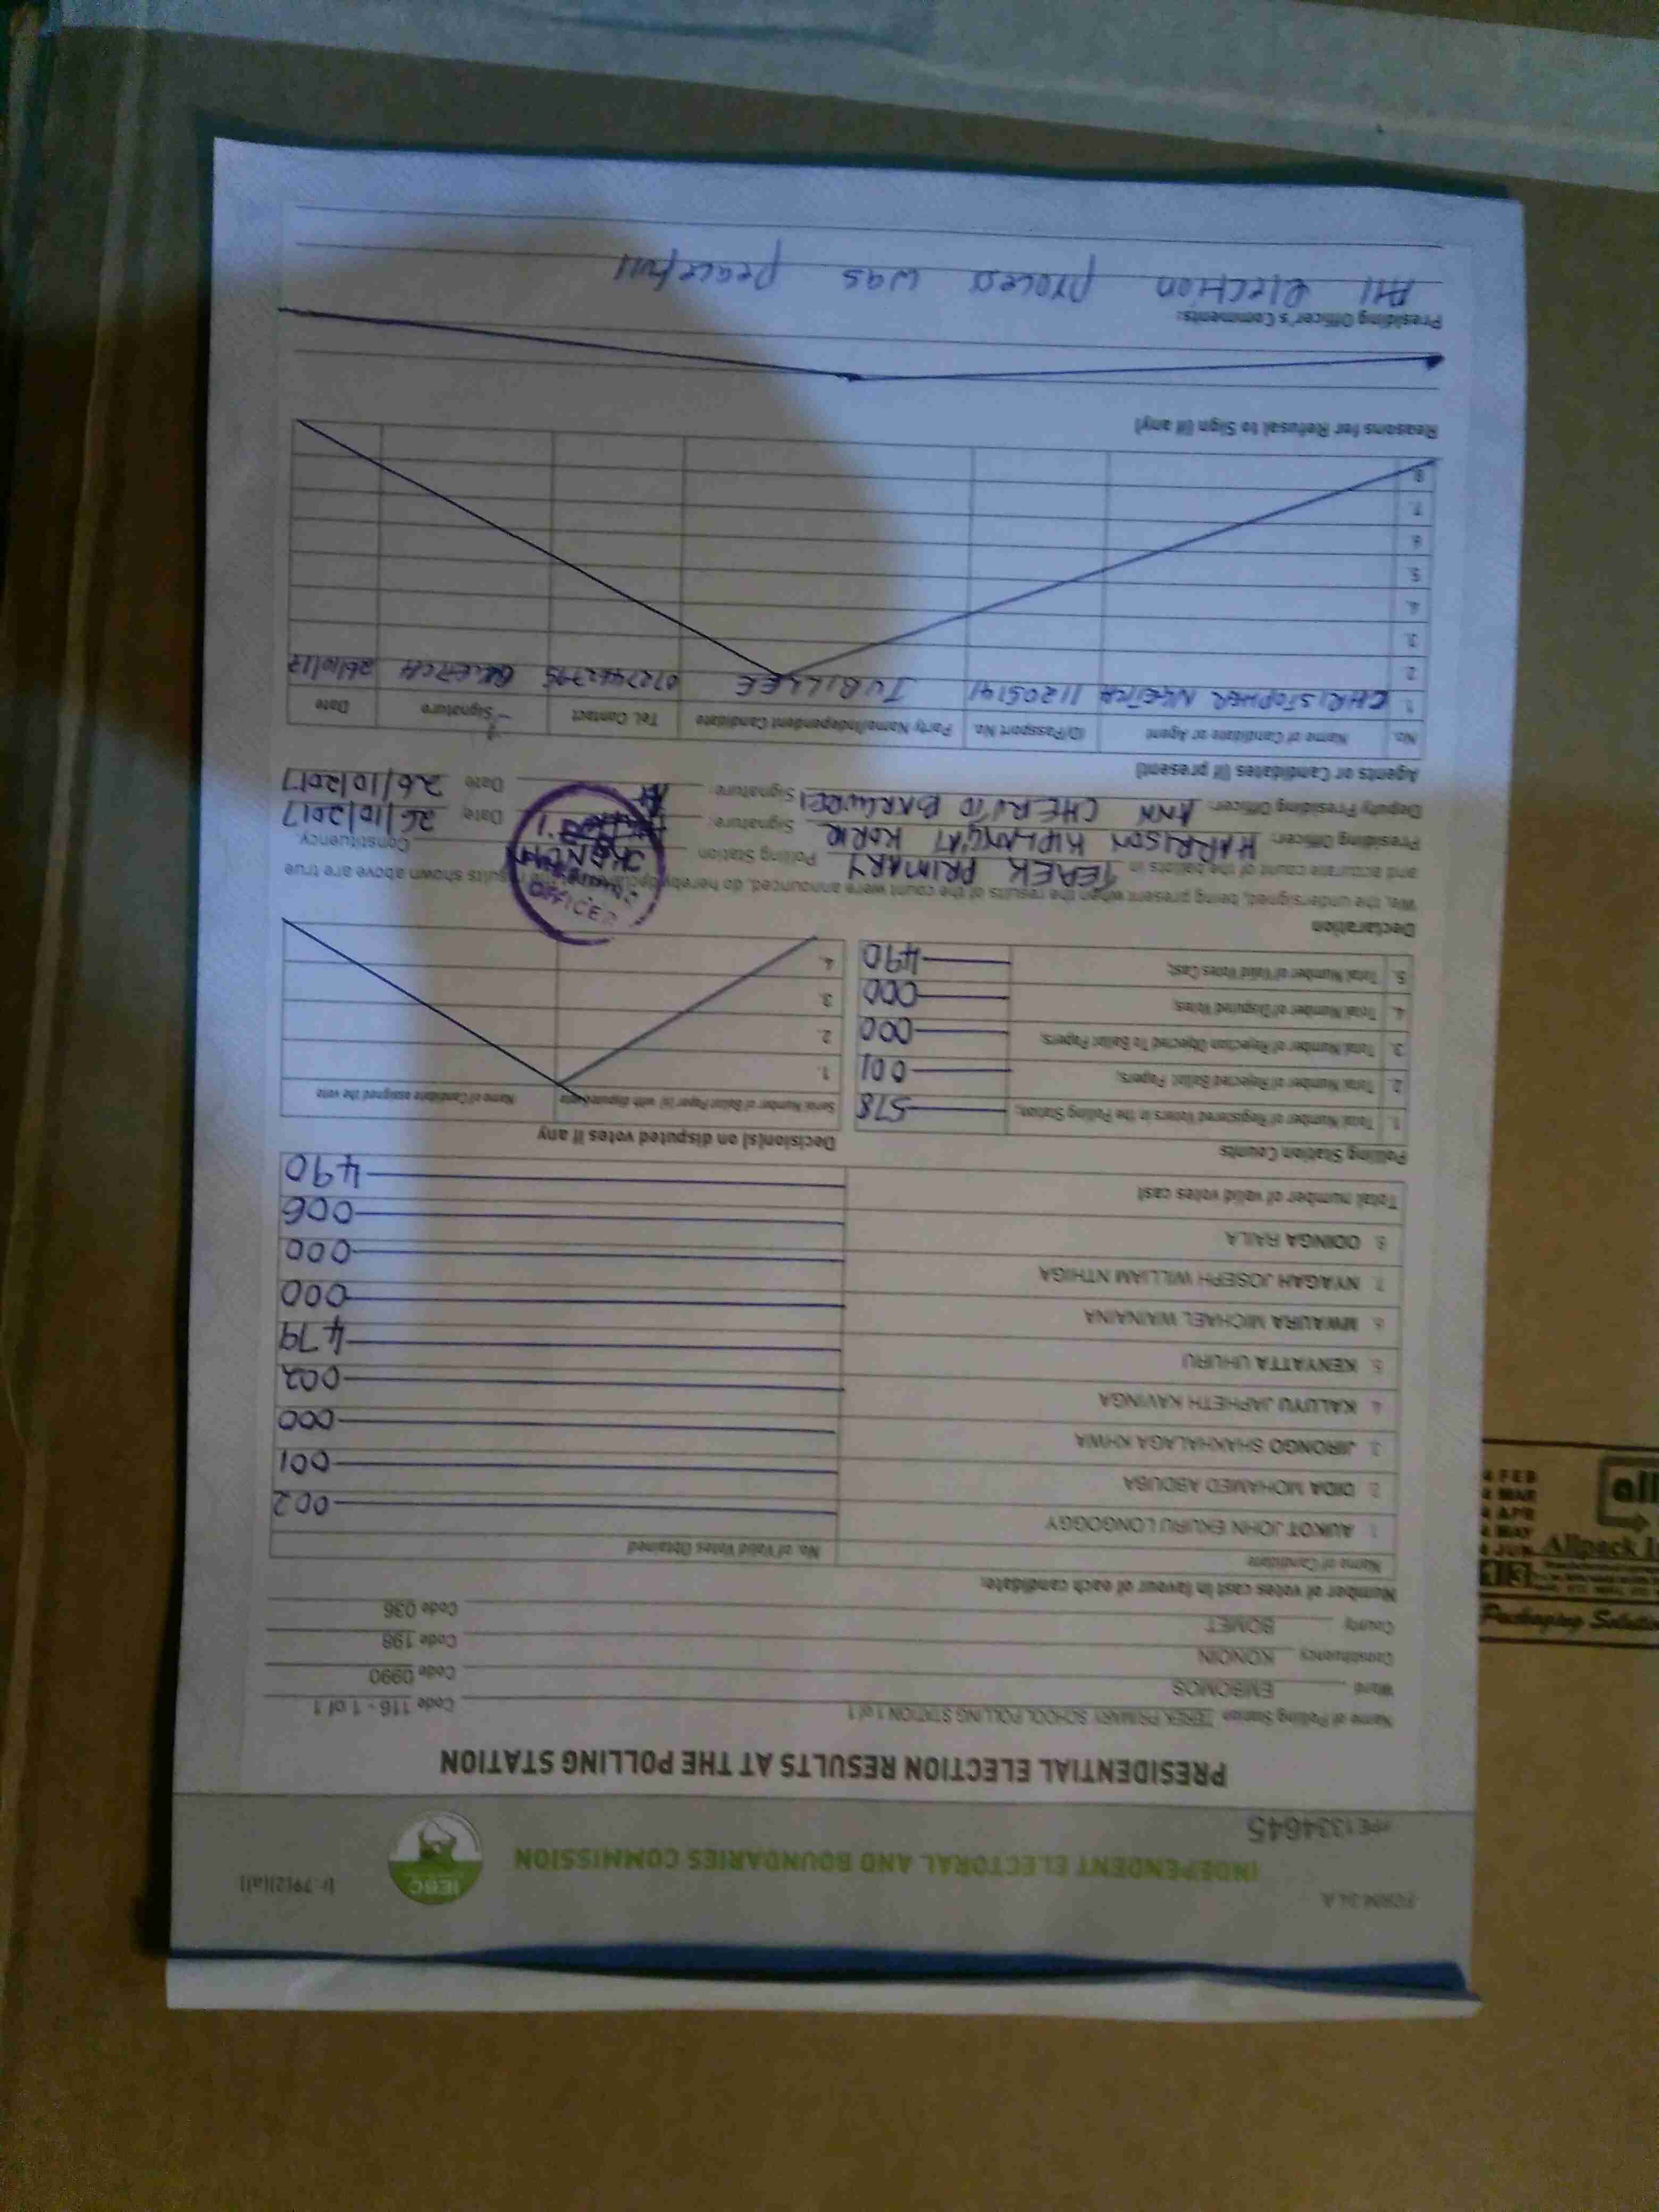 FORM 34 A
(r. 79(2)(a))
INDEPENDENT ELECTORAL AND BOUNDARIES COMMISSION
IEBC
*PE1334645
PRESIDENTIAL ELECTION RESULTS AT THE POLLING STATION
Name of Polling Station TEREK PRIMARY SCHOOL POLLING STATION 1 of 1 Code 116 - 1 of 1
Ward EMBOMOS Code 0990
Constituency KONOIN Code 198
County BOMET Code 036
Number of votes cast in favour of each candidate:
Name of Candidate No. of Valid Votes Obtained
1. AUKOT JOHN EKURU LONGOGGY 002
2. DIDA MOHAMED ABDUBA 001
3. JIRONGO SHAKHALAGA KHWA 000
4. KALUYU JAPHETH KAVINGA 002
5. KENYATTA UHURU 479
6. MWAURA MICHAEL WAINAINA 000
7. NYAGAH JOSEPH WILLIAM NTHIGA 000
8. ODINGA RAILA 006
Total number of valid votes cast 490
Polling Station Counts
1. Total Number of Registered Voters in the Polling Station; 578
2. Total Number of Rejected Ballot Papers; 001
3. Total Number of Rejection Objected To Ballot Papers; 000
4. Total Number of Disputed Votes; 000
5. Total Number of Valid Votes Cast; 490
Decision(s) on disputed votes if any
Serial Number of Ballot Paper (s) with disputed vote Name of Candidate assigned the vote
1.
2.
3.
4.
Declaration
We, the undersigned, being present when the results of the count were announced, do hereby declare that the results shown above are true
and accurate count of the ballots in TEREK PRIMARY Polling Station Constituency
Presiding Officer: HARRISON KIPLANGAT KORIR Signature: Date: 26/10/2017
Deputy Presiding Officer: ANN CHERUTO Signature: Date 26/10/2017
OFFICER
Agents or Candidates (if present)
No. Name of Candidate or Agent ID/Passport No. Party Name/Independent Candidate Tel. Contact Signature Date
1. CHRISTOPHER 11205141 JUBILEE 26/10/17
2.
3.
4.
5.
6.
7.
8.
Reasons for Refusal to Sign (if any)
Presiding Officer's Comments:
All election process was peacefull
4 FEB
4 MAR
4 APR
4 MAY
4 JUN
13
all
Allpack In
Packaging Solutio